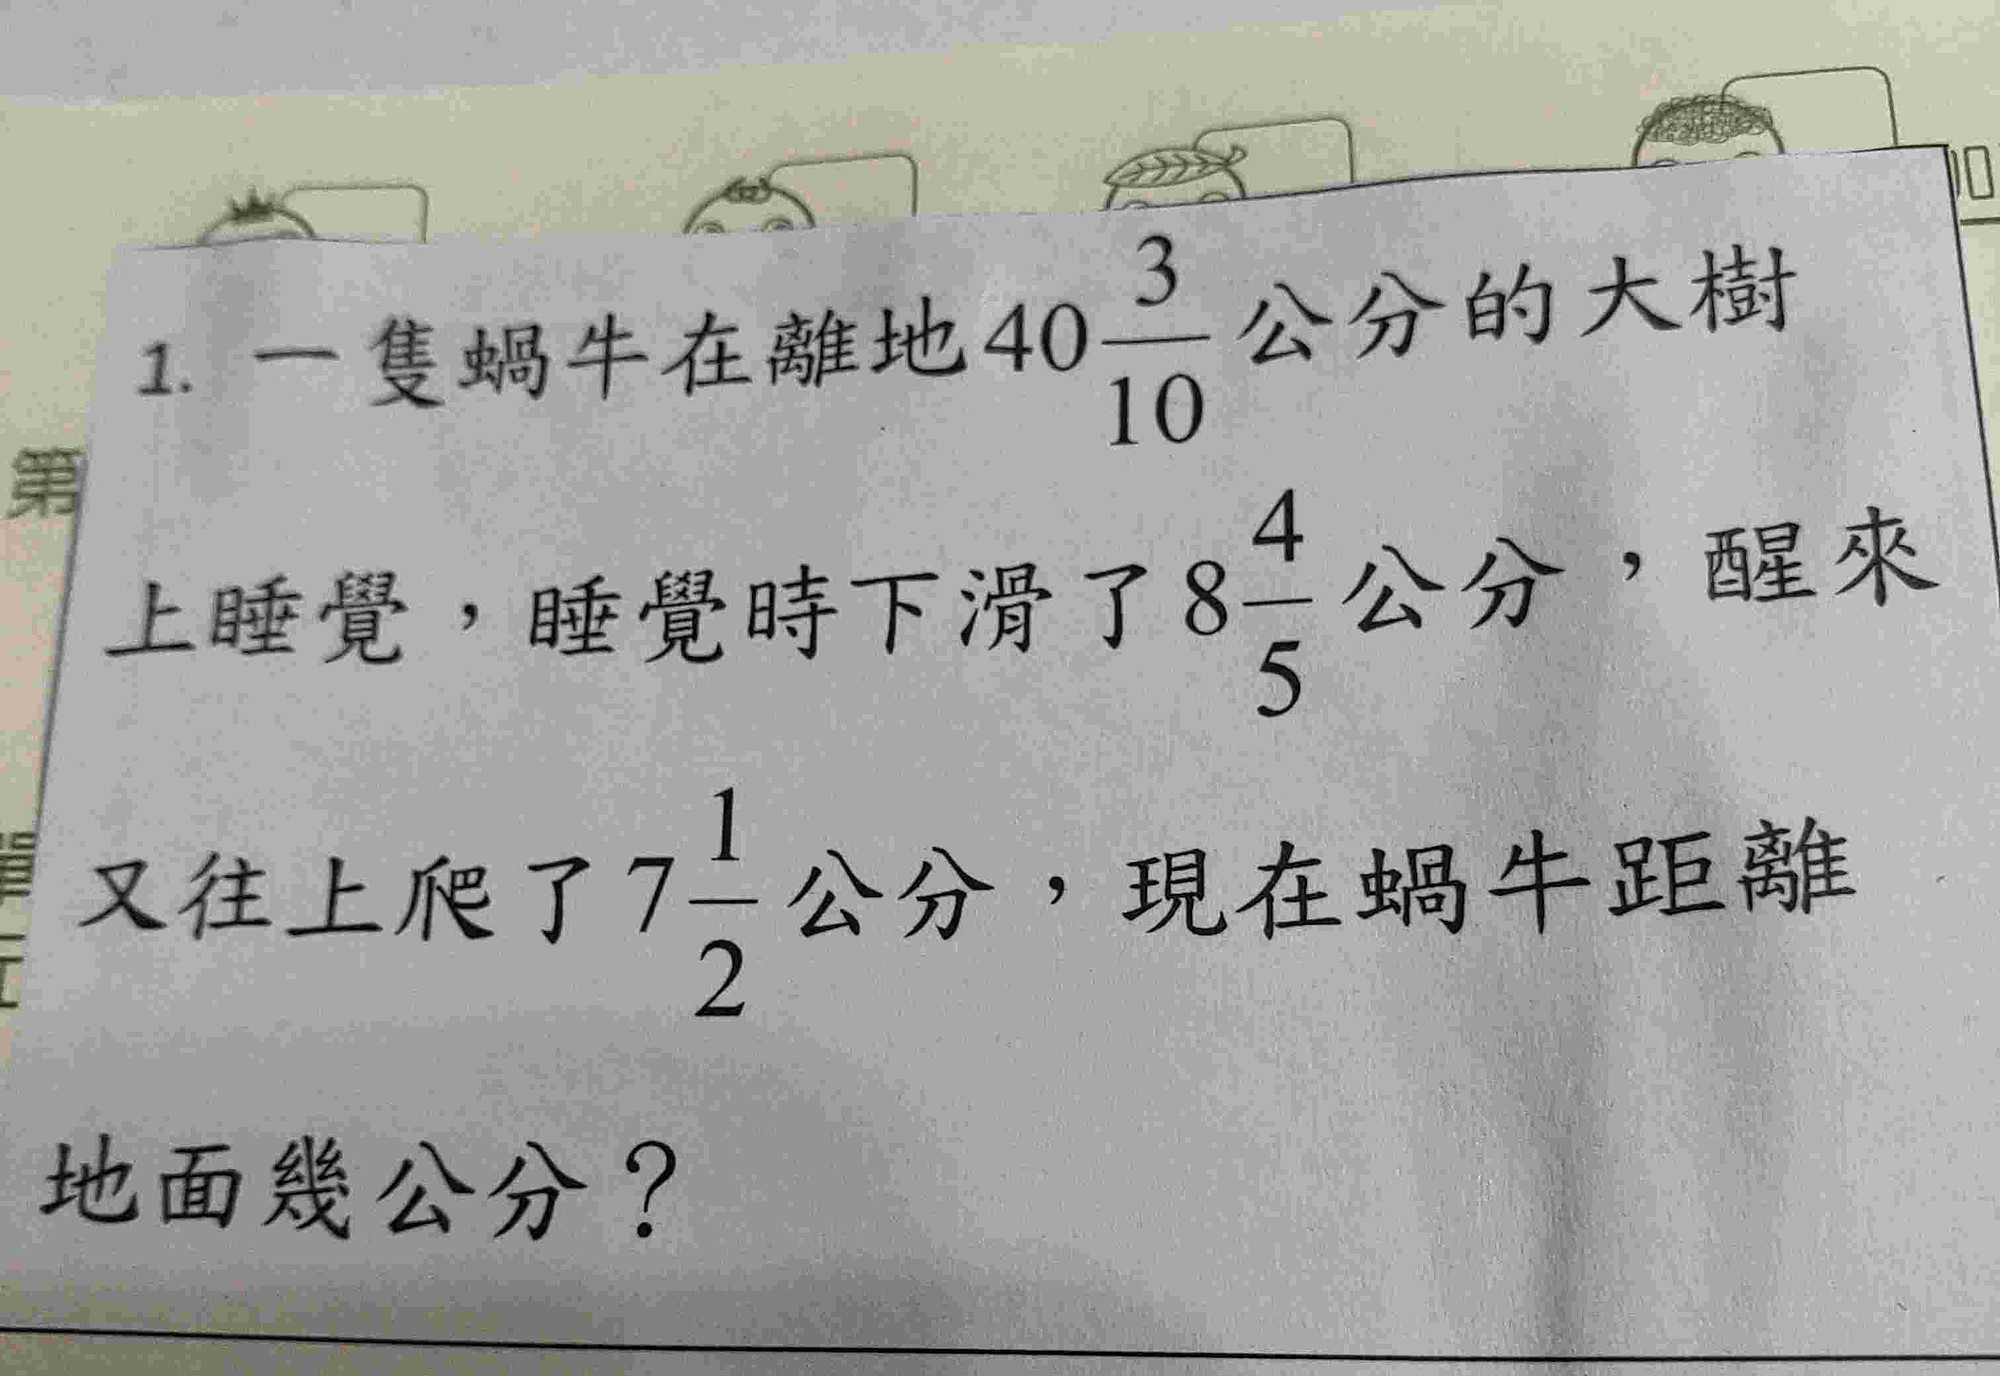 1. 一隻蝸牛在離地40 3/10 公分的大樹
上睡覺，睡覺時下滑了8 4/5 公分，醒來
又往上爬了7 1/2 公分，現在蝸牛距離
地面幾公分？
第